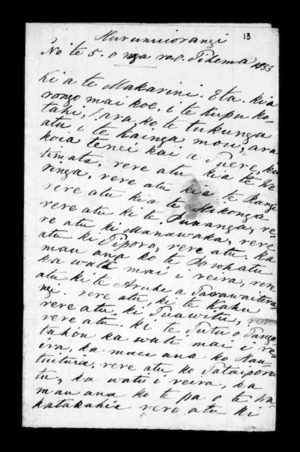 Murumuiorangi 13
No te 5. o nga ra o Tihema 1853
Ki a te Makarini. Eta. kia
rongo mai koe, i te kupu ko
tahi, ara, ko te tukunga
atu i te kainga mou, ara
koia tenei kai a Puere, ka
timata, rere atu kia te ho
renga, rere atu kia te Rangi
rere atu kia te
rere atu ki te Punanga, re
re atu ki Manawaraka, rere
atu ki Piporo, rere atu, ka
mau ana ko te Pohatu
ka watu mai i reira, rere
atu ki te Aruhe a Tawawaitira
ngi. rere atu, ki te Kahu
rere atu ki Puawitu,
rere atu. ki te Tutu o Tanga
tahou ka watu mai i re
ira ka mau ana ko Nau
tuitura, rere atu ko Tataiporu
tu, ka watu i reira, ka
mau ana ko te pa o te ha
katakahia rere atu ki